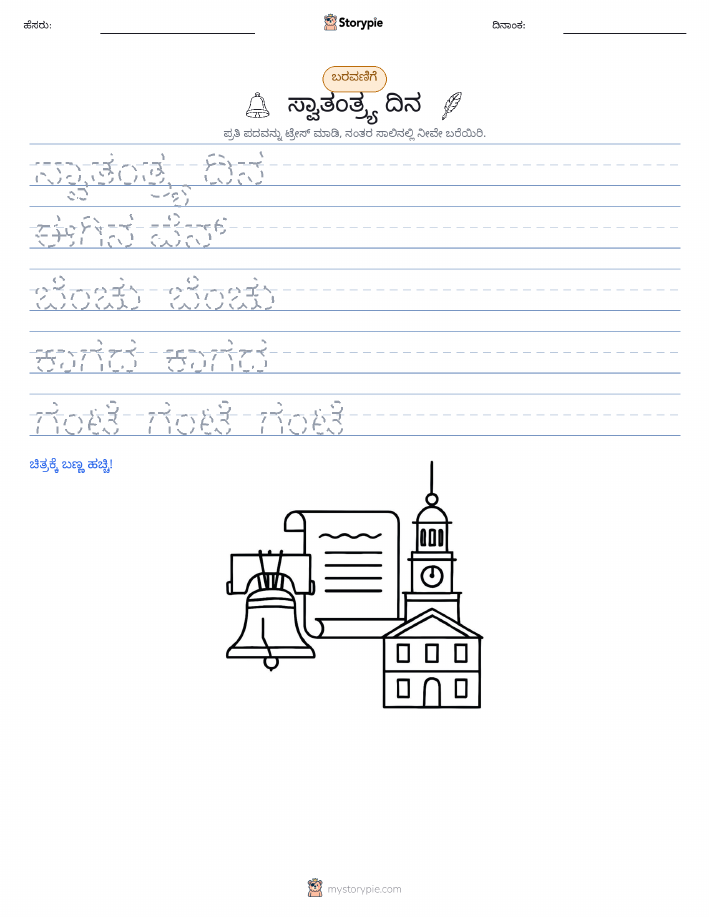 ಹೆಸರು:
Storypie
ದಿನಾಂಕ:
ಬರವಣಿಗೆ
ಸ್ವಾತಂತ್ರ್ಯ ದಿನ
ಪ್ರತಿ ಪದವನ್ನು ಟ್ರೇಸ್ ಮಾಡಿ, ನಂತರ ಸಾಲಿನಲ್ಲಿ ನೀವೇ ಬರೆಯಿರಿ.
ಸ್ವಾತಂತ್ರ್ಯ ದಿನ
ಈಗಿನ ಪೆನ್
ಬೆಂಚು ಬೆಂಚು
ಕಾಗದ ಕಾಗದ
ಗಂಟೆ ಗಂಟೆ ಗಂಟೆ
ಚಿತ್ರಕ್ಕೆ ಬಣ್ಣ ಹಚ್ಚಿ!
mystorypie.com